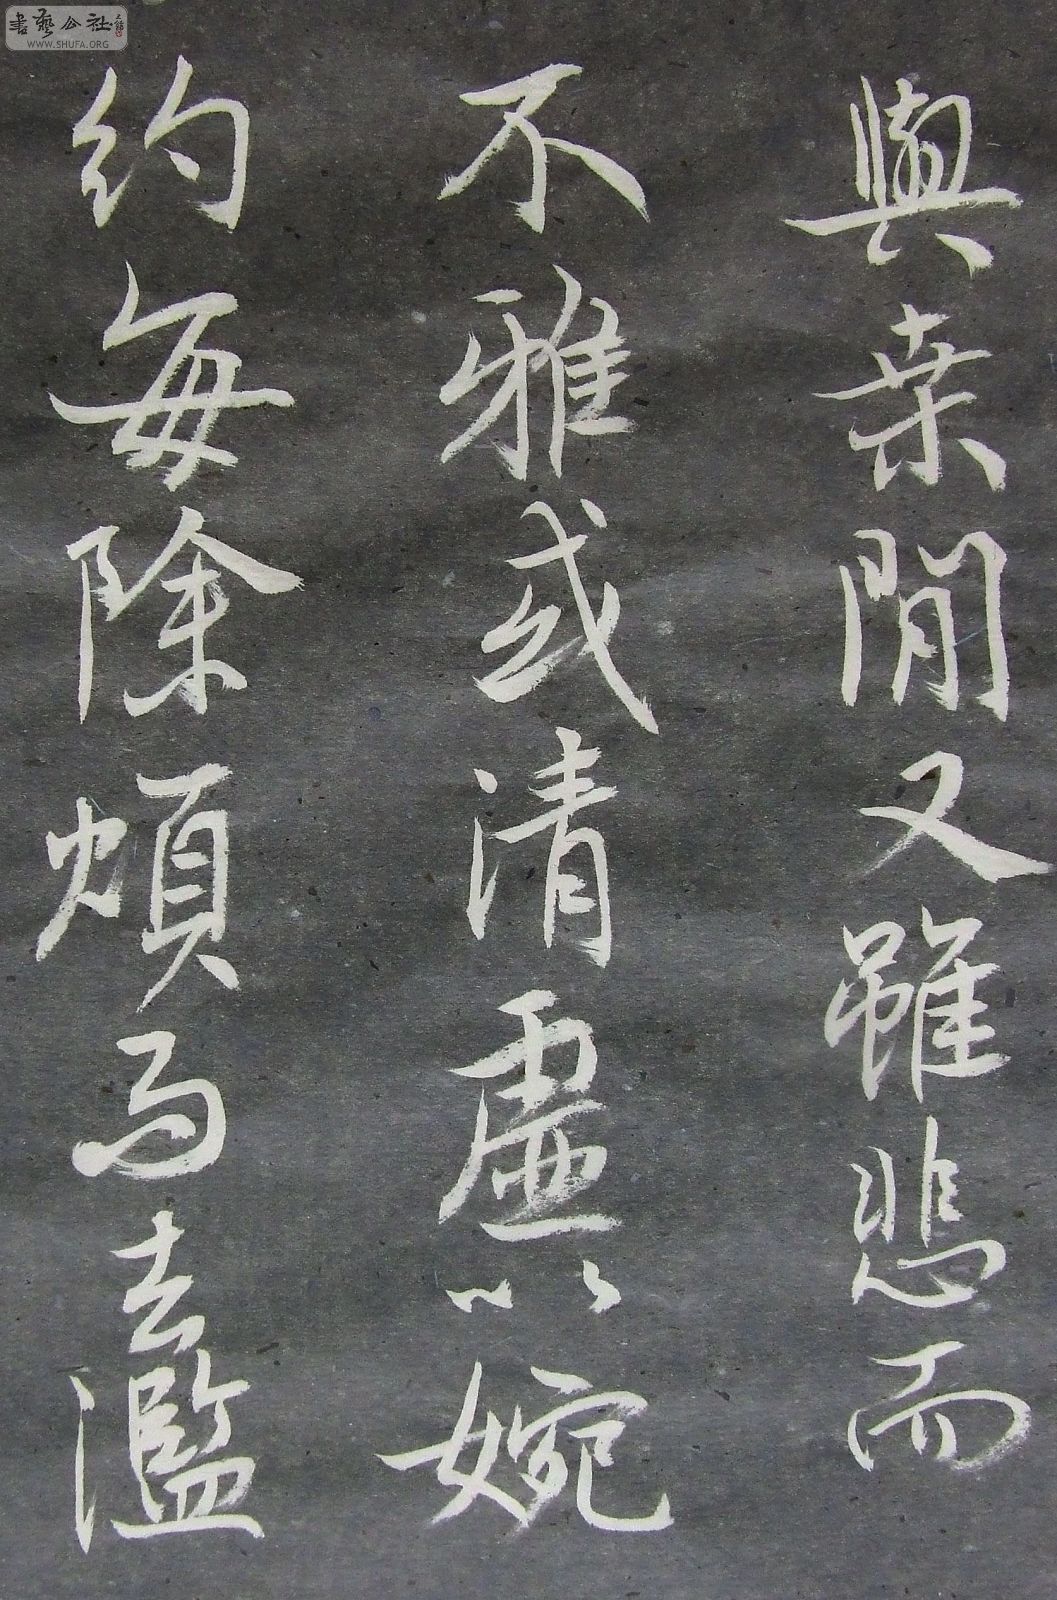 與桒閒又雖悲而
不雅或清虛以婉
約每除煩而去濫
書藝公社
WWW.SHUFA.ORG